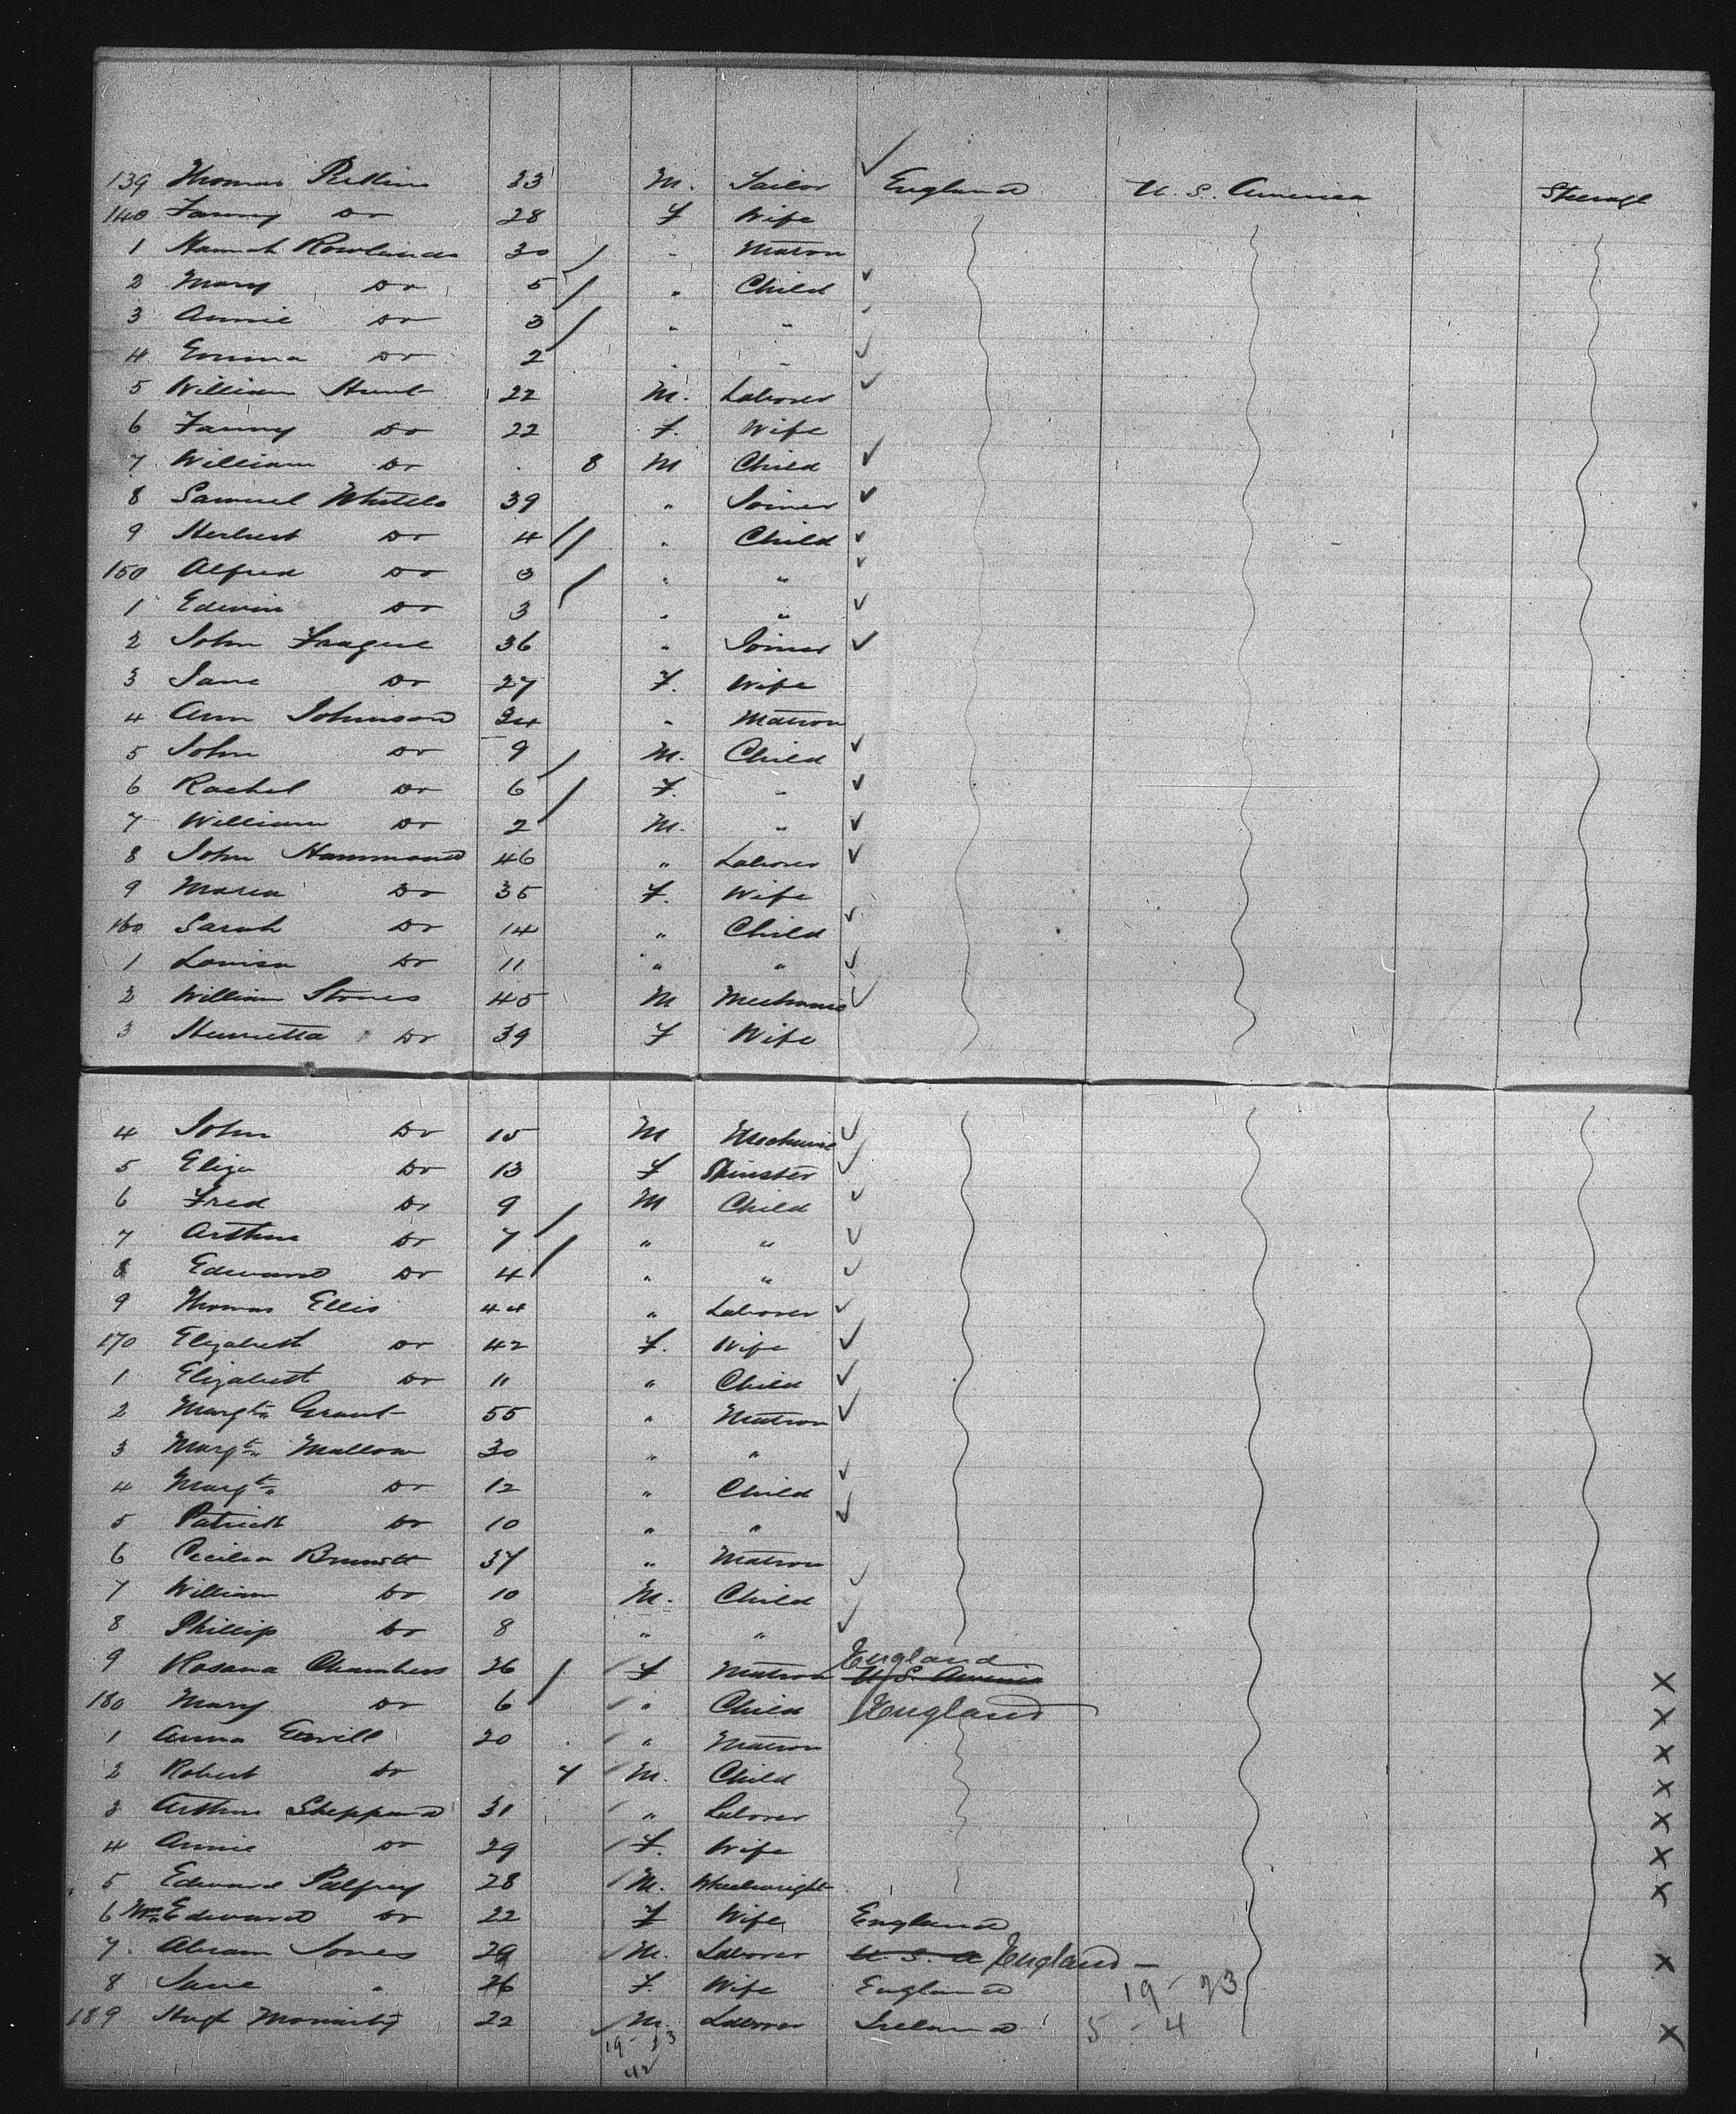 139 Thomas Perkins 33 M. Tailor ✓ England U. S. America Steerage
140 Fanny Do 28 F Wife
1 Hannah Rowlands 30 / " Matron
2 Mary Do 5 / " Child ✓
3 Annie Do 3 / " "
4 Emma Do 2 " " ✓
5 William Hunt 22 M. Laborer ✓
6 Fanny Do 22 F. Wife
7 William Do 8 M Child ✓
8 Samuel 39 " Joiner ✓
9 Herbert Do 4 // " Child ✓
150 Alfred Do 3 / " " ✓
1 Edwin Do 3 " " ✓
2 John 36 " Joiner ✓
3 Jane Do 27 F. Wife
4 Ann Johnson 34 " Matron
5 John Do 9 / M. Child ✓
6 Rachel Do 6 / F. " ✓
7 William Do 2 M. " ✓
8 John Hammond 46 " Laborer ✓
9 Maria Do 35 F. Wife
160 Sarah Do 14 " Child ✓
1 Louisa Do 11 " " ✓
2 William Stones 45 M Mechanic ✓
3 Henrietta Do 39 F Wife
4 John Do 15 M Mechanic ✓
5 Eliza Do 13 F Spinster ✓
6 Fred Do 9 / M Child ✓
7 Arthur Do 7 / " " ✓
8 Edward Do 4 " " ✓
9 Thomas Ellis 44 " Laborer ✓
170 Elizabeth Do 42 F. Wife ✓
1 Elizabeth Do 11 " Child ✓
2 Margt Grant 55 " Matron ✓
3 Margt Mallon 30 " "
4 Margt Do 12 " Child ✓
5 Patrick Do 10 " " ✓
6 Cecilia 37 " Matron
7 William Do 10 M. Child ✓
8 Phillip Do 8 " " ✓
9 Rosana Chambers 26 / / F Matron England U. S. America X
180 Mary Do 6 / " Child England X
1 Anna 20 / " Matron X
2 Robert Do 7 / M. Child X
3 Arthur Sheppard 31 / " Laborer X
4 Annie Do 29 / F. Wife X
5 Edward Palfrey 28 / M. Wheelwright X
6 Mrs Edward Do 22 F Wife England
7. Abram Jones 29 / M. Laborer U. S. A England X
8 Jane " 26 F. Wife England 19 - 23
189 Hugh Moriarty 22 ✓ M. Laborer Ireland 5 - 4 X
19 - 23
42